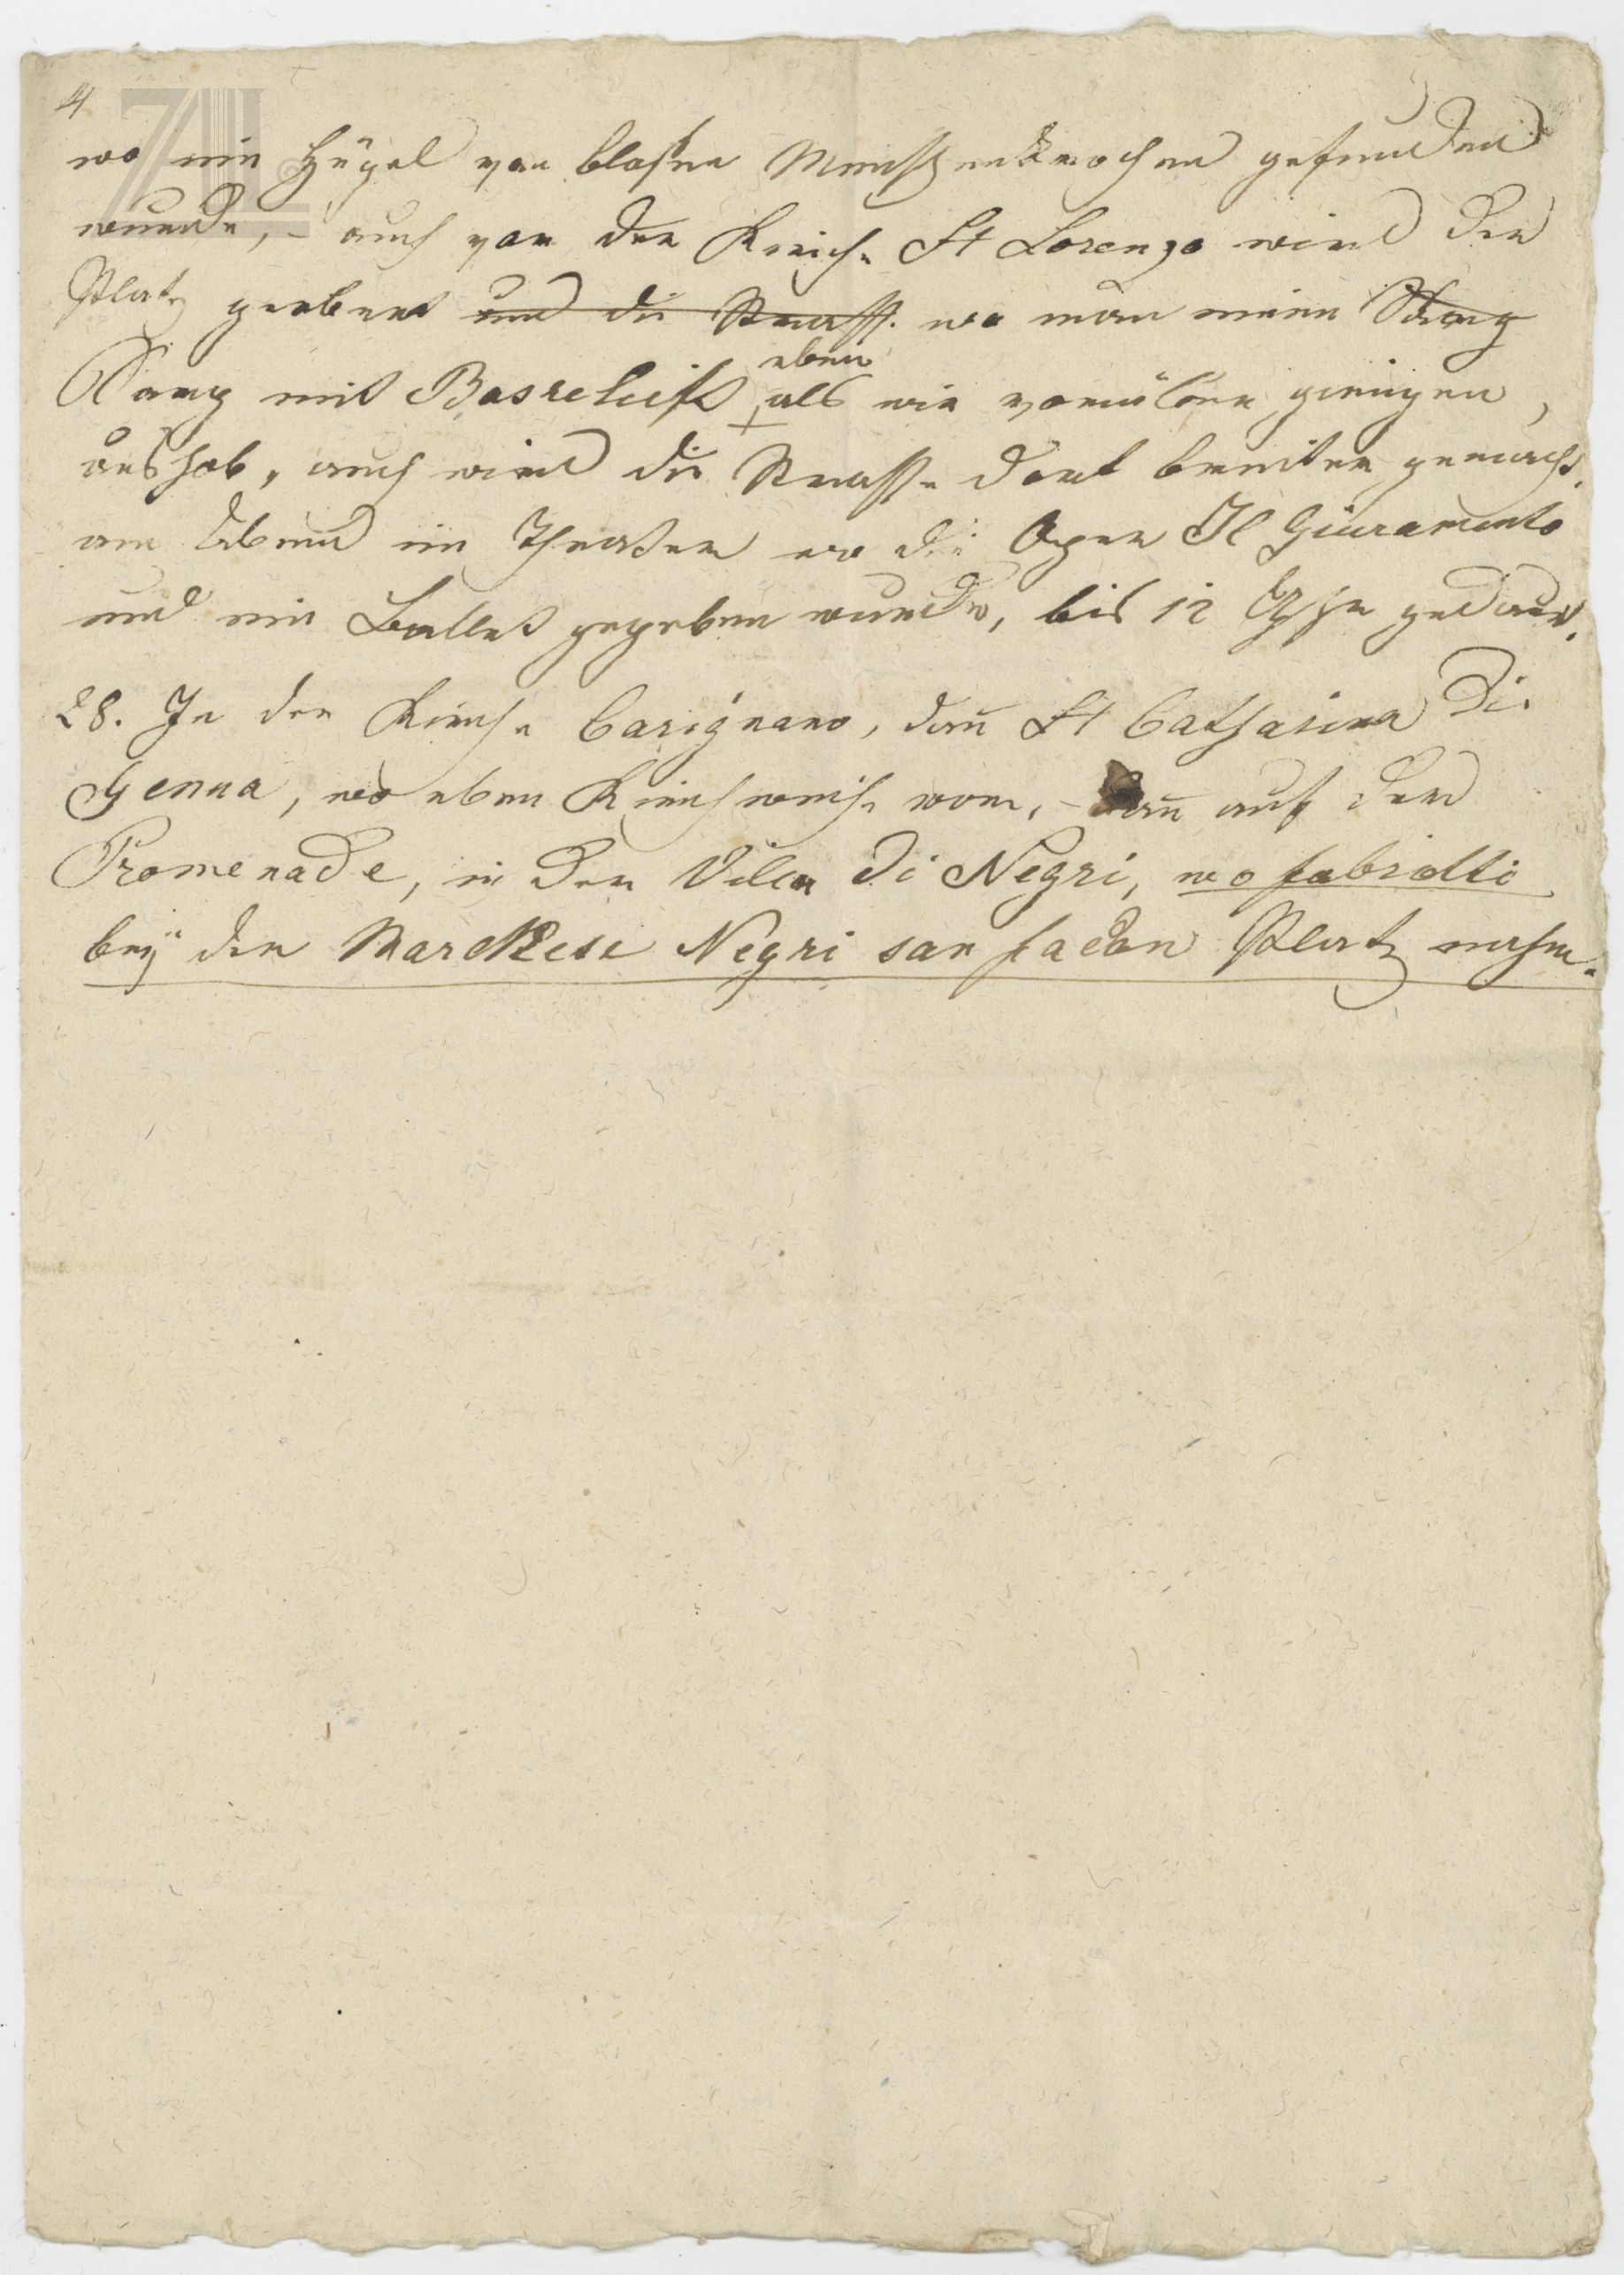 4
wo ein Hügel von bloßen Menschenknochen gefunden
wurde, – auch vor der Kirche St Lorenzo wird der
Platz geebnet und die Strasse wo man einen Sarg
Sarg mit Basreliefs eben als wir vorüber giengen,
aushob, auch wird die Strasse dort breiter gemacht.
am Abend im Theater wo die Oper Il Giuramento
und ein Ballet gegeben wurde, bis 12 Uhr gedauert.
28. In der Kirche Carignano, dann St Catharina di
Genua, wo eben Kirchweihe war, – dann auf der
Promenade, in der Villa di Negri, wo fabriotti
bey den Marchese Negri san facon Platz nahm.